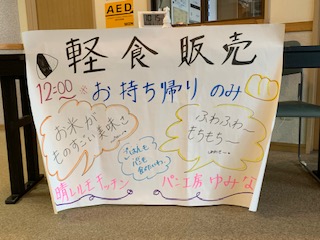 AED
軽食販売
12:00〜 お持ち帰りのみ
お米が
ものすごい美味さ
ふわふわ〜
もちもち〜
ごはんも
パンも
晴レルモキッチン
パン工房ゆみな